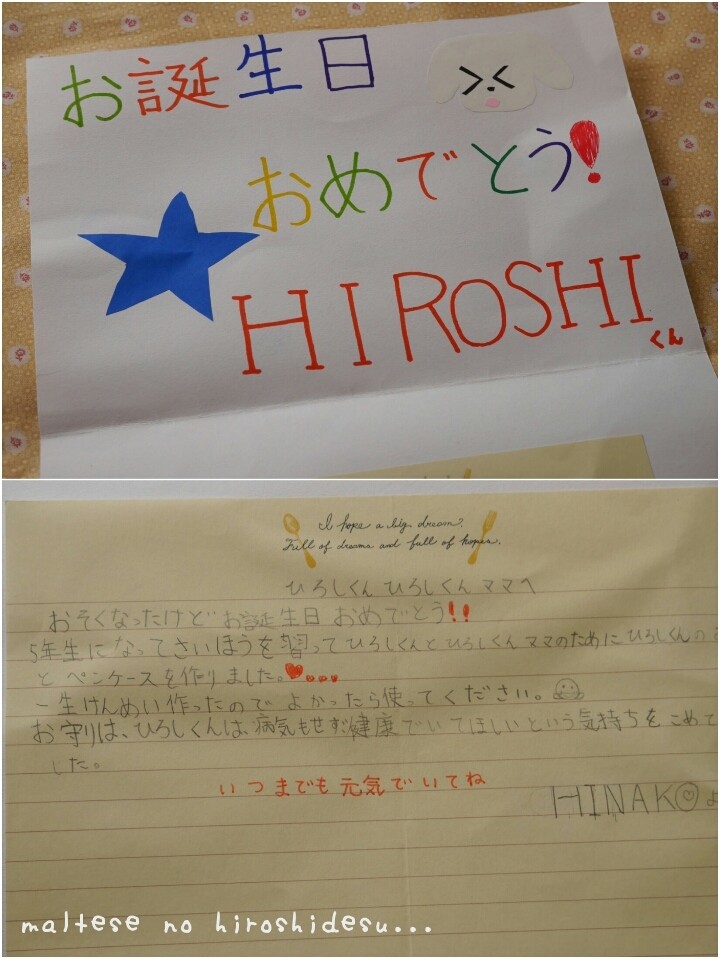 お誕生日
おめでとう!
HIROSHI
くん
I hope a big dream.
Full of dreams and full of hopes.
ひろしくん ひろしくんママへ
おそくなったけど お誕生日 おめでとう!!
5年生になってさいほうを習ってひろしくんとひろしくんママのためにひろしくんの
とペンケースを作りました。♥...
一生けんめい作ったので よかったら使ってください。
お守りは、ひろしくんは、病気もせず健康でいてほしいという気持ちをこめて
した。
いつまでも元気でいてね
HINAKO よ
maltese no hiroshidesu...